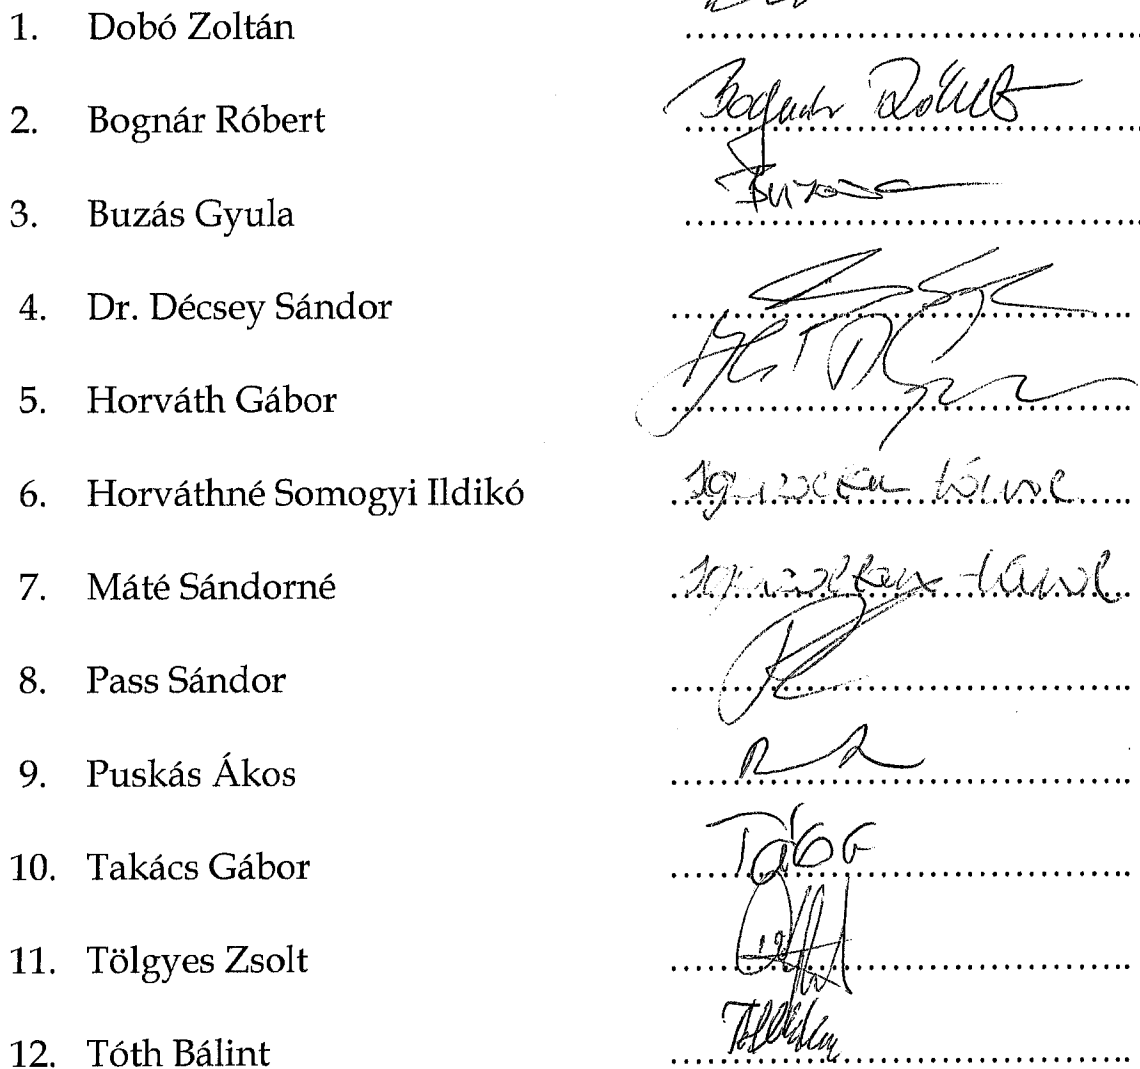 1. Dobó Zoltán
2. Bognár Róbert Bognár Róbert
3. Buzás Gyula Buzás
4. Dr. Décsey Sándor
5. Horváth Gábor
6. Horváthné Somogyi Ildikó Igazoltan távol
7. Máté Sándorné Igazoltan távol
8. Pass Sándor
9. Puskás Ákos
10. Takács Gábor
11. Tölgyes Zsolt
12. Tóth Bálint